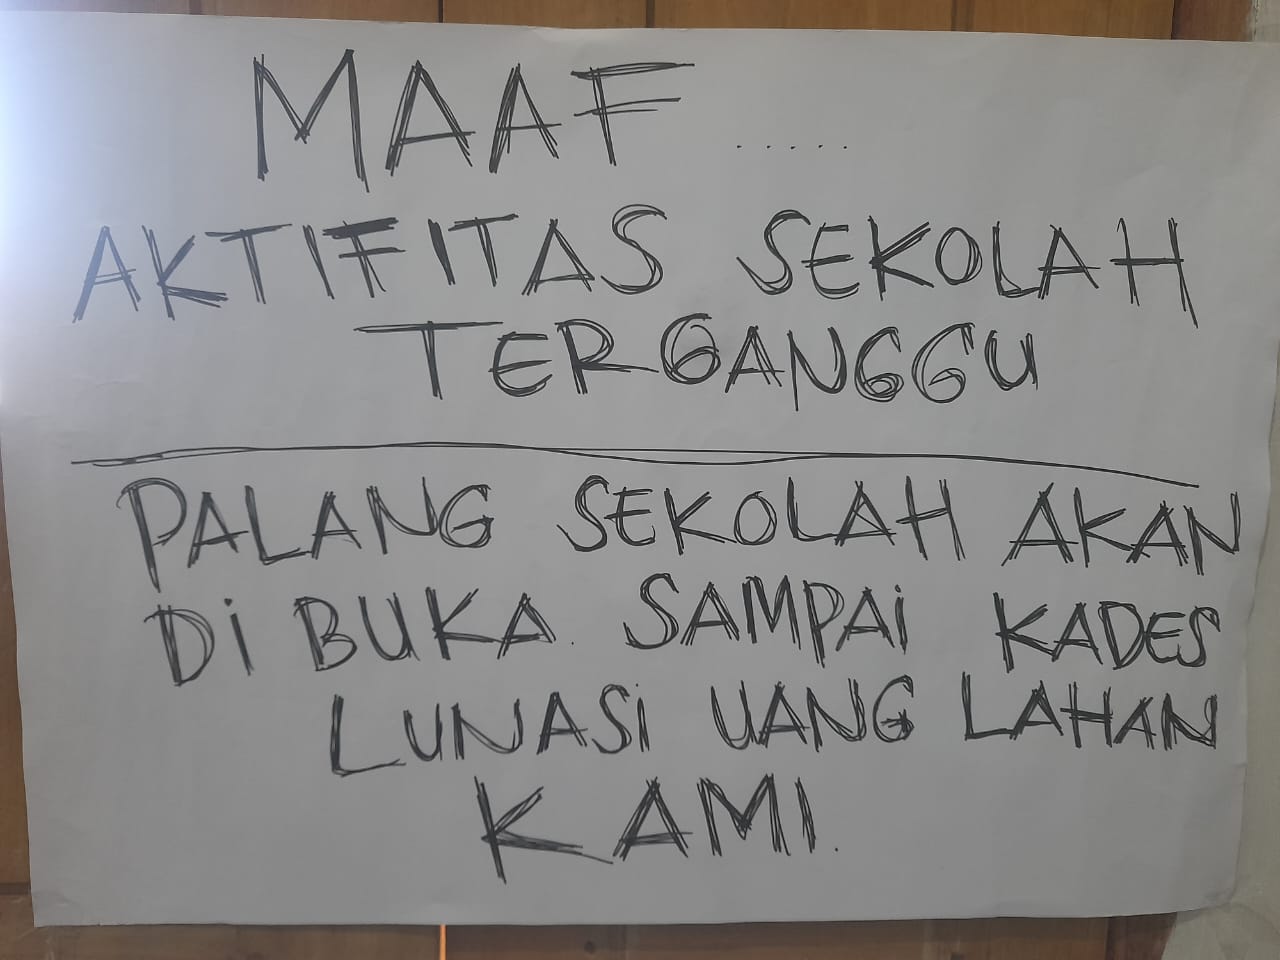 MAAF .....
AKTIFITAS SEKOLAH
TERGANGGU
PALANG SEKOLAH AKAN
Di BUKA. SAMPAi KADES
LUNASi UANG LAHAN
KAMI.